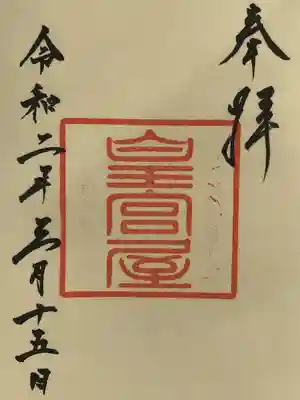 奉拝
皇宮屋
令和二年三月十五日